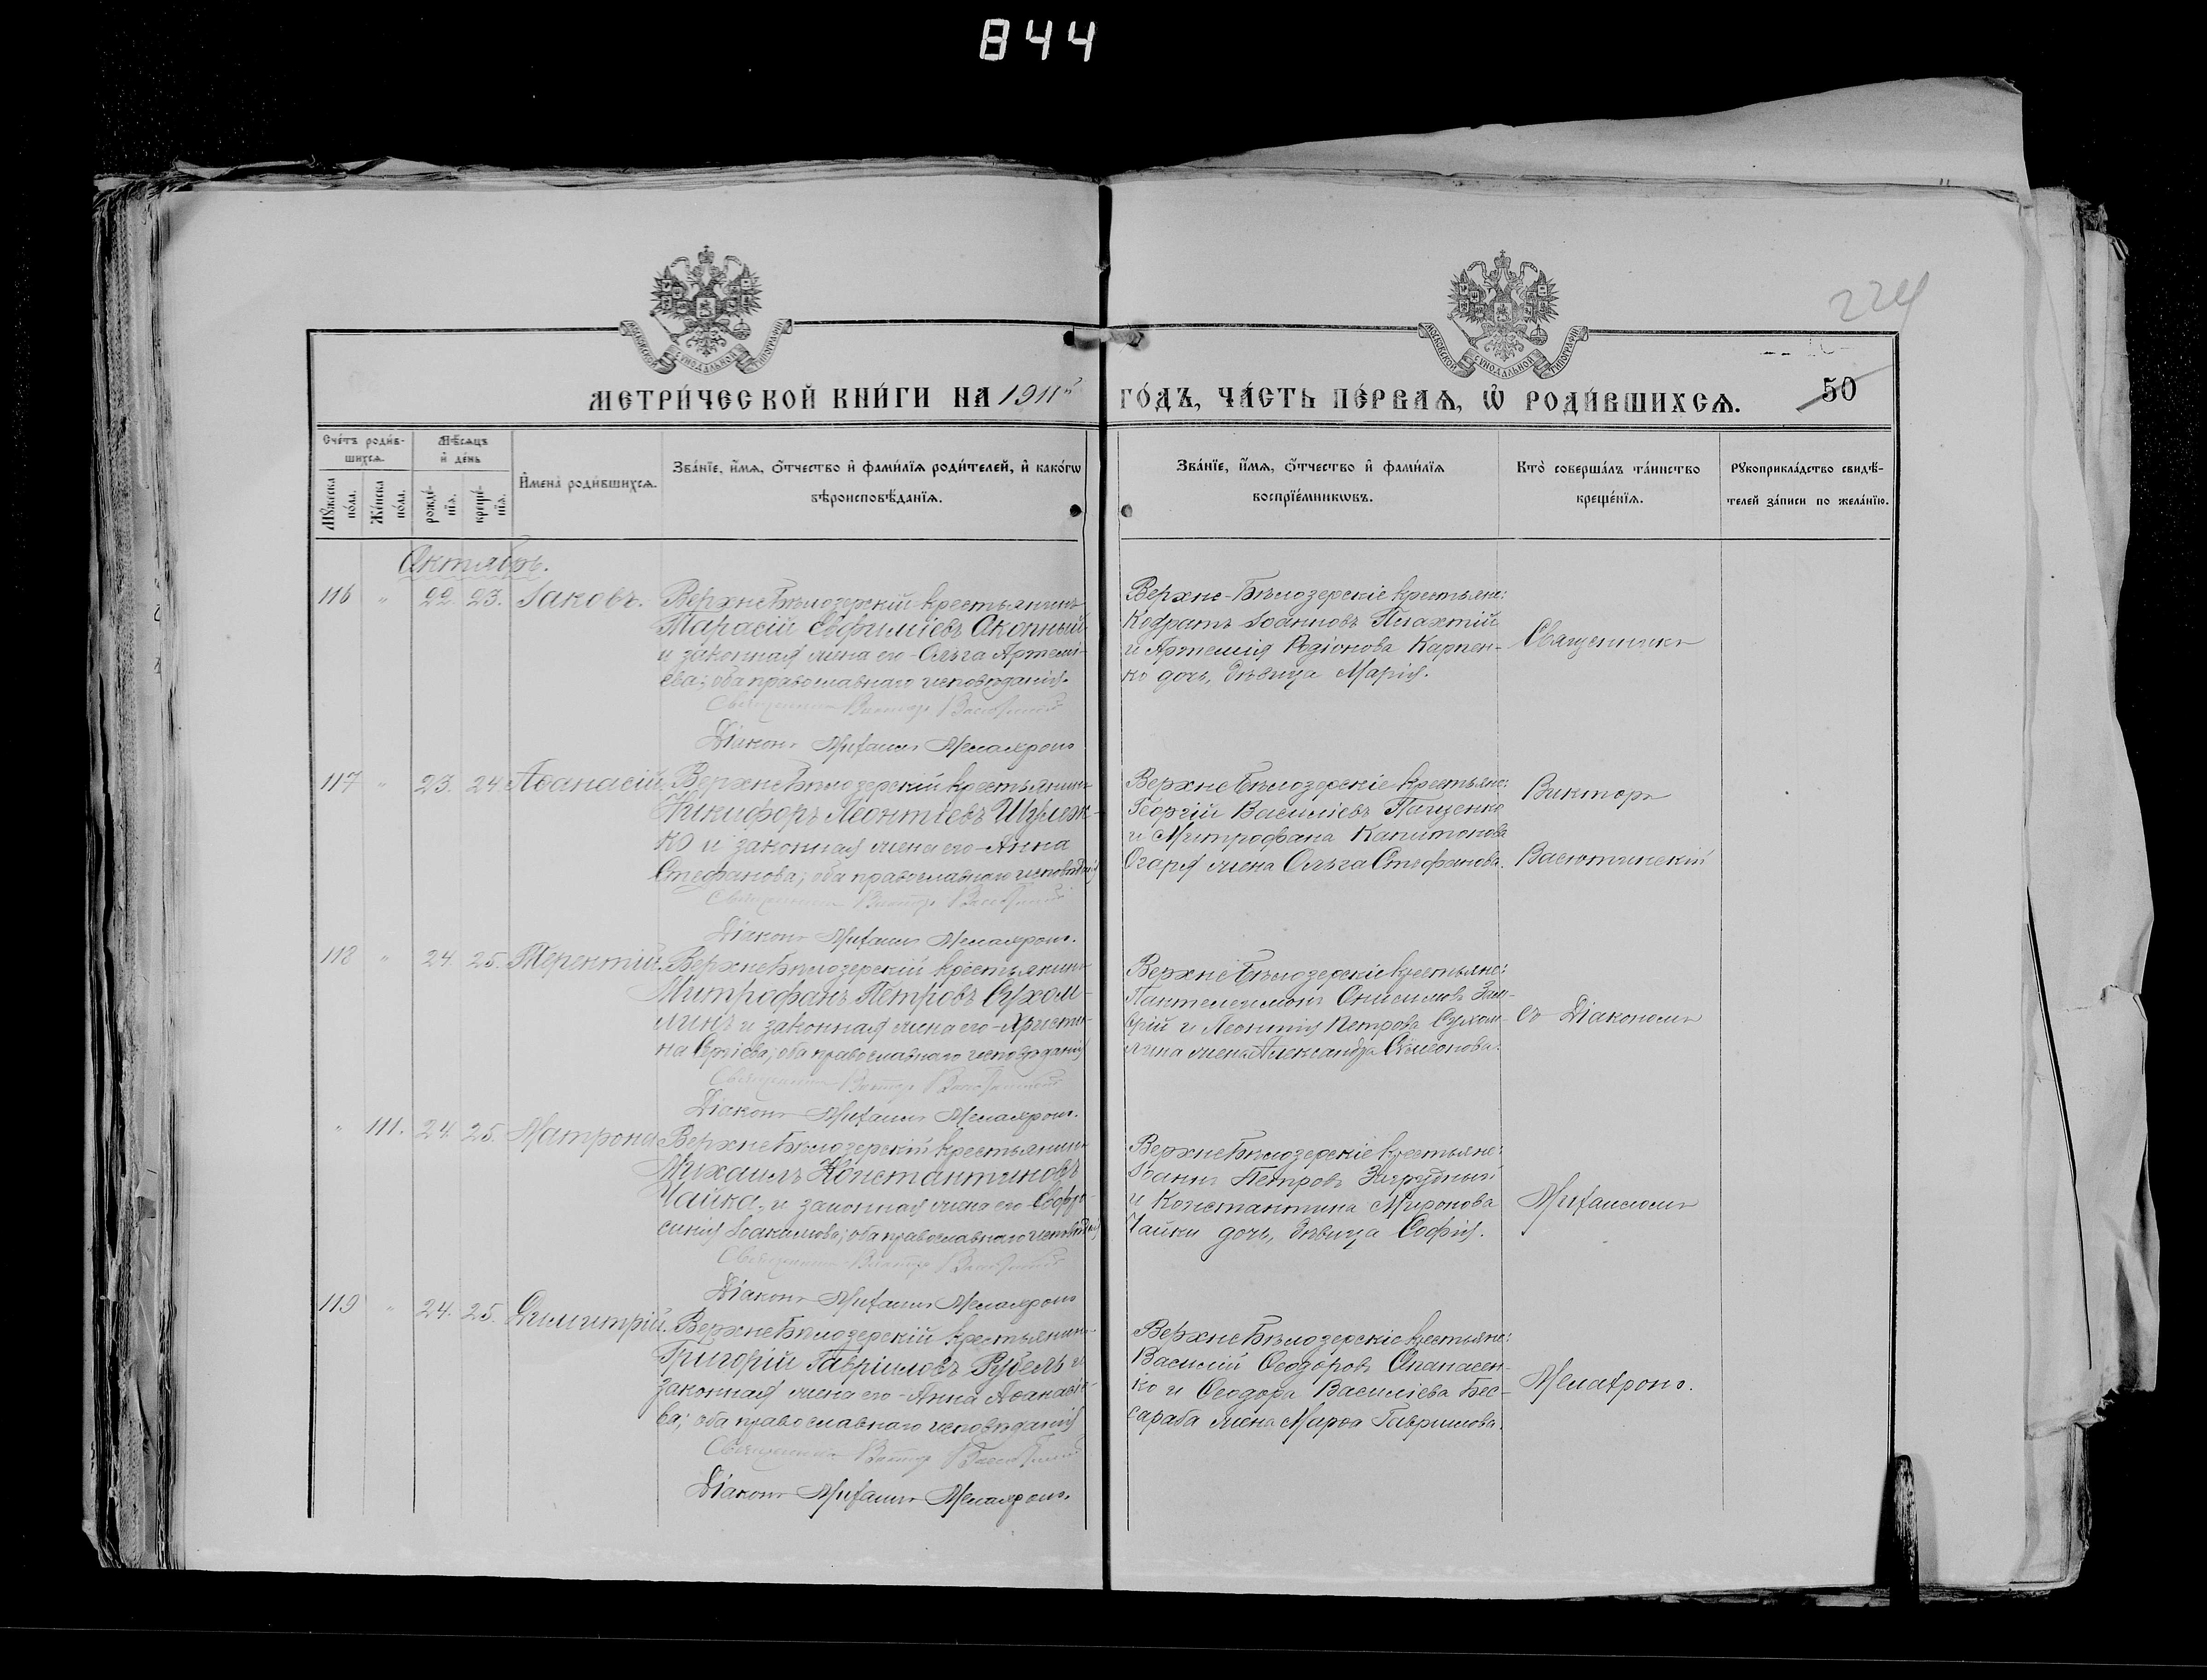 844
224
МОСКОВСКОЙ СѴНОДАЛЬНОЙ ТИПОГРАФІИ
МОСКОВСКОЙ СѴНОДАЛЬНОЙ ТИПОГРАФІИ
МЕТРИ́ЧЕСКОЙ КНИ́ГИ НА 1911й ГО́ДЪ, ЧА́СТЬ ПЕ́РВАѦ, Ѡ҆ РОДИ́ВШИХСѦ. 50
Сче́тъ роди́в-
шихсѧ.
Мѣ́сѧцъ
и҆ де́нь
Мꙋ́жеска
по́ла.
Же́нска
по́ла.
рожде́-
нїѧ.
креще́-
нїѧ.
И҆мена̀ роди́вшихсѧ.
Зва́нїе, и҆́мѧ, ѻ҆́тчество и҆ фами́лїѧ роди́телей, и҆ како́гѡ
вѣроисповѣ́данїѧ.
Зва́нїе, и҆́мѧ, ѻ҆́тчество и҆ фами́лїѧ
воспрїе́мникѡвъ.
Кто̀ соверша́лъ та́инство
креще́нїѧ.
Рꙋкоприкла́дство свидѣ́-
телей за́писи по жела́нїю.
Октябрь.
116 " 22. 23. Іаковъ.
Верхне Бѣлозерскій крестьянинъ
Тарасій Евфиміевъ Окопный
и законная жена его - Ольга Артемі-
ева; оба православнаго исповѣданія.
Священникъ Викторъ Васютинскій
Діаконъ Михаилъ
Верхне-Бѣлозерскіе крестьяне:
Кодратъ Іоанновъ Плахтій
и Артемія Родіонова Карпен-
ко дочь, дѣвица Марія.
Священникъ
117 " 23. 24. Аѳанасій.
Верхне Бѣлозерскій крестьянинъ
Никифоръ Леонтіевъ Шулеж-
ко и законная жена его - Анна
Стефанова; оба православнаго исповѣданія
Священникъ Викторъ Васютинскій
Діаконъ Михаилъ
Верхне Бѣлозерскіе крестьяне:
Георгій Василіевъ Пащенко
и Митрофана Капитонова
Огаря жена Ольга Стефанова.
Викторъ
Васютинскій
118 " 24 25. Терентій.
Верхне Бѣлозерскій крестьянинъ
Митрофанъ Петровъ Сухом-
линъ и законная жена его - Христи-
на Сергіева; оба православнаго исповѣданія
Священникъ Викторъ Васютинскій
Діаконъ Михаилъ
Верхне Бѣлозерскіе крестьяне:
Пантелеимонъ Онисимовъ
и Леонтія Петрова Сухом-
лина жена Александра Симеонова.
съ Діакономъ
" 111. 24. 25. Матрона
Верхне Бѣлозерскій крестьянинъ
Михаилъ Константиновъ
Чайка, и законная жена его - Евфро-
синія Іоакимова; оба православнаго исповѣданія
Священникъ Викторъ Васютинскій
Діаконъ Михаилъ
Верхне Бѣлозерскіе крестьяне:
Іоаннъ Петровъ
и Константина Миронова
Чайки дочь, дѣвица Софія.
Михаиломъ
119 " 24. 25. Димитрій.
Верхне Бѣлозерскій крестьянинъ
Григорій Гавріиловъ Рубель и
законная жена его - Анна Аѳанасіе-
ва; оба православнаго исповѣданія
Священникъ Викторъ Васютинскій
Діаконъ Михаилъ
Верхне Бѣлозерскіе крестьяне:
Василій Ѳеодоровъ Опанасен-
ко и Ѳеодора Василіева Бес-
сараба жена Марѳа Гавриилова.